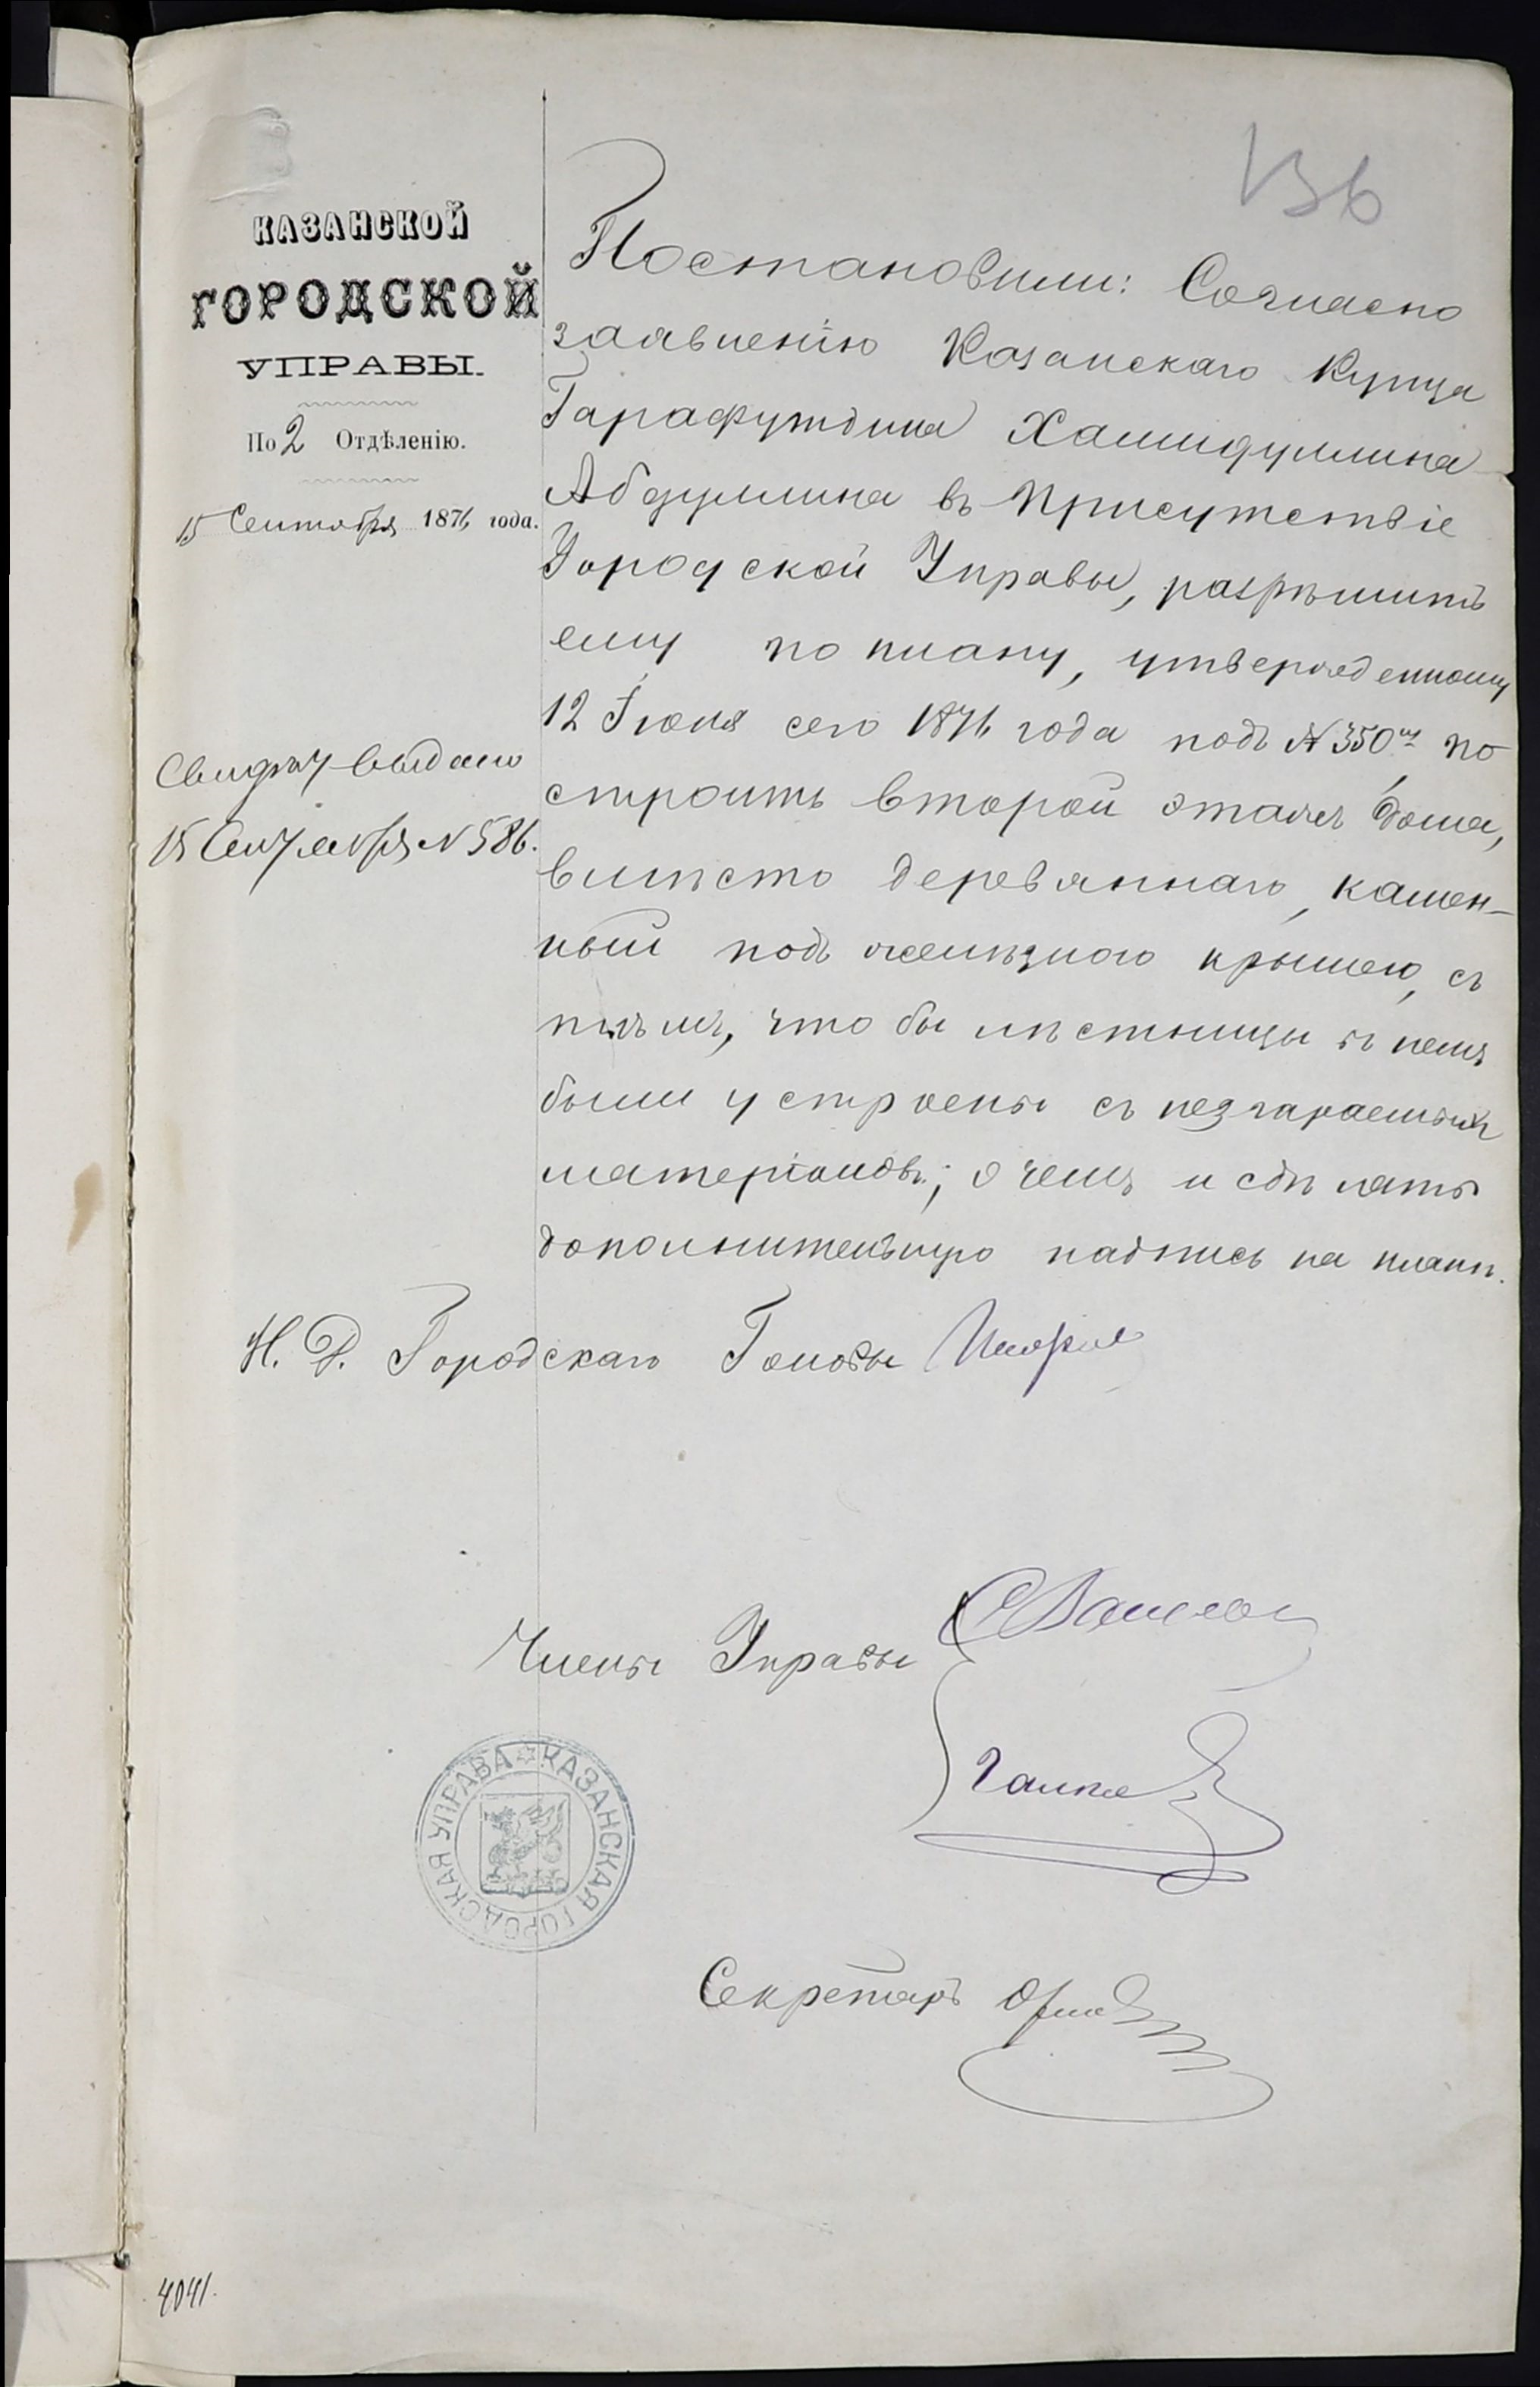 136
КАЗАНСКОЙ
ГОРОДСКОЙ
УПРАВЫ.
По 2 Отдѣленію.
15 Сентября 1876 года.
Свидѣт выдано
15 Сентября N 586.
Постановили: Согласно
заявленію Казанскаго Купца
Гарафутдина Хамидуллина
Абдуллина въ Присутствіе
Городской Управы, разрѣшить
ему по плану, утвержденному
12 Іюня сего 1876 года подъ № 350мъ по
строить второй этажъ дома,
вмѣсто деревяннаго, камен-
ный подъ желѣзною крышею, съ
тѣмъ, что бы лѣстницы въ немъ
были устроены съ незгараемыхъ
матеріаловъ; о чемъ и сдѣлать
дополнительную надпись на планѣ.
И. Д. Городскаго Головы
Члены Управы
Секретарь
КАЗАНСКАЯ ГОРОДСКАЯ УПРАВА
4041.